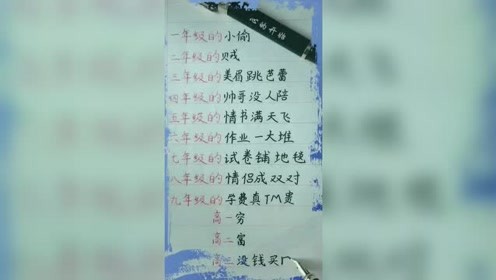 心的开始
一年级的小偷
二年级的贼
三年级的美眉跳芭蕾
四年级的帅哥没人陪
五年级的情书满天飞
六年级的作业一大堆
七年级的试卷铺地毯
八年级的情侣成双对
九年级的学费真TM贵
高一穷
高二富
高三没钱买